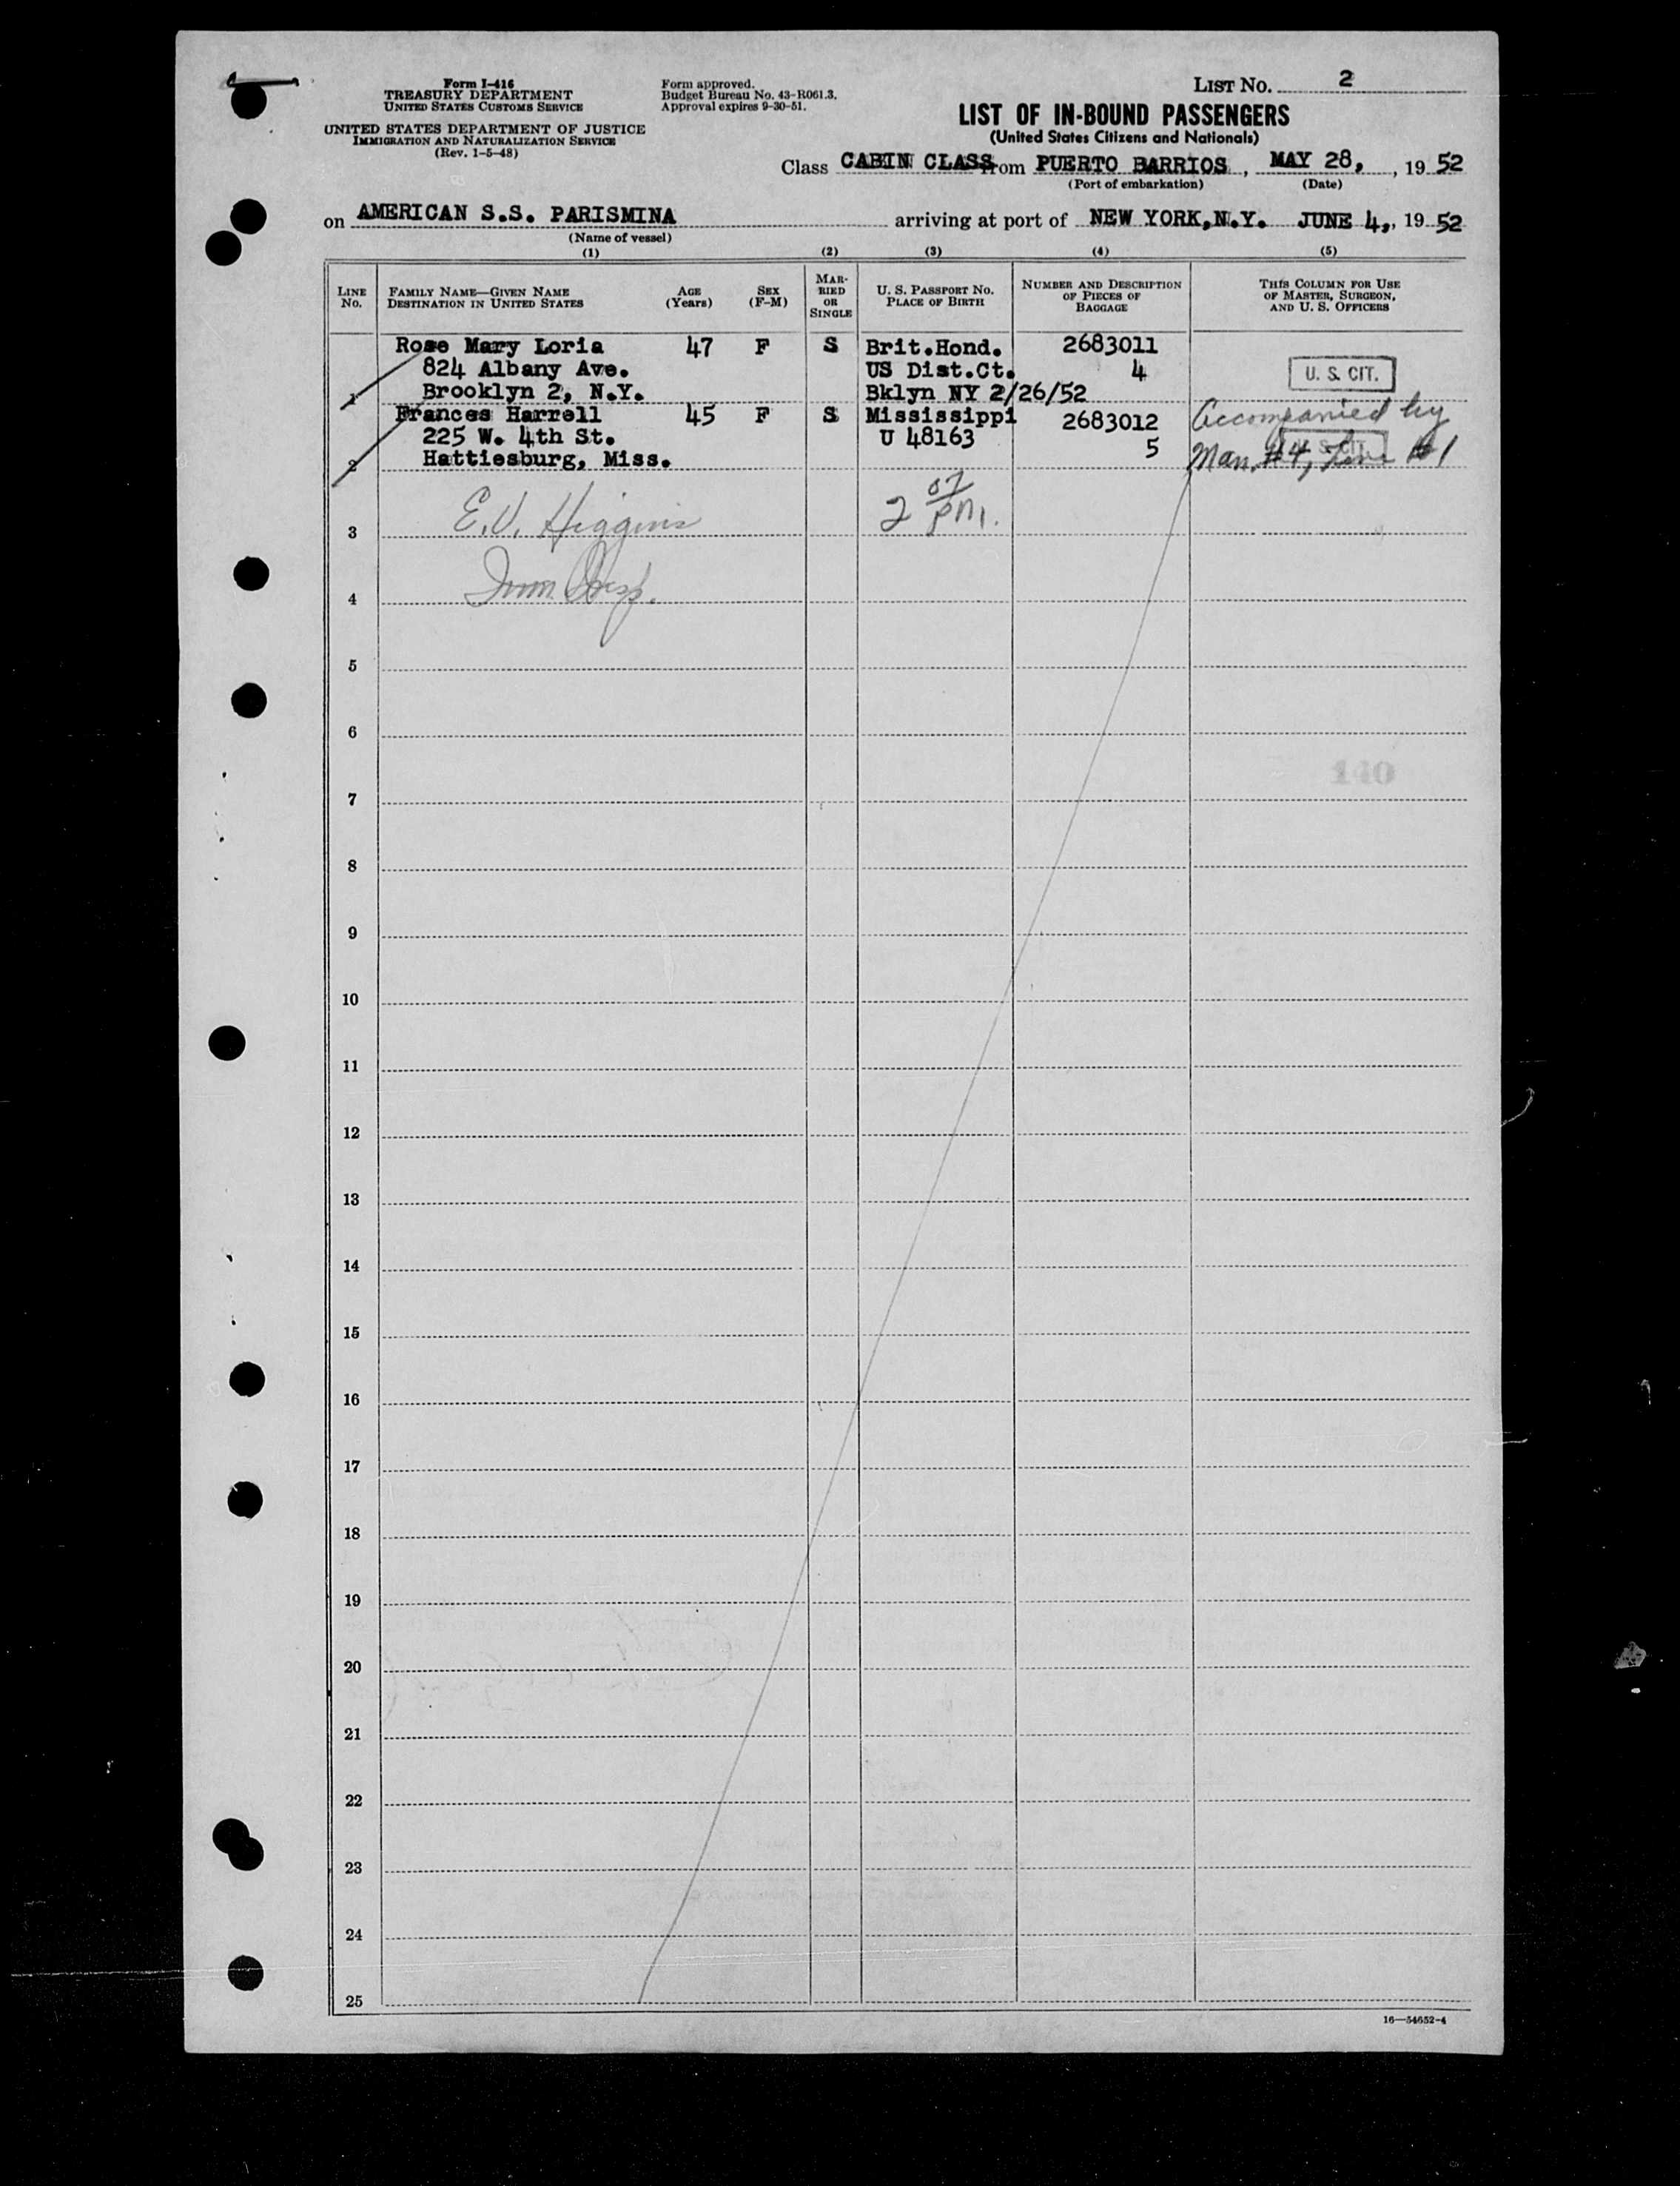 Form I-416
TREASURY DEPARTMENT
UNITED STATES CUSTOMS SERVICE
UNITED STATES DEPARTMENT OF JUSTICE
IMMIGRATION AND NATURALIZATION SERVICE
(Rev. 1-5-48)
Form approved.
Budget Bureau No. 43-R061.3.
Approval expires 9-30-51.
LIST NO. 2
LIST OF IN-BOUND PASSENGERS
(United States Citizens and Nationals)
Class CABIN CLASS from PUERTO BARRIOS, MAY 28, , 19 52
(Port of embarkation) (Date)
on AMERICAN S.S. PARISMINA arriving at port of NEW YORK, N.Y. JUNE 4,, 19 52
(Name of vessel)
(1) (2) (3) (4) (5)
LINE NO.
FAMILY NAME—GIVEN NAME
DESTINATION IN UNITED STATES
AGE (Years)
SEX (F-M)
MARRIED OR SINGLE
U. S. PASSPORT NO.
PLACE OF BIRTH
NUMBER AND DESCRIPTION OF PIECES OF BAGGAGE
THIS COLUMN FOR USE OF MASTER, SURGEON, AND U. S. OFFICERS
Rose Mary Loria 47 F S Brit.Hond. 2683011
824 Albany Ave. US Dist.Ct. 4 U. S. CIT.
1 Brooklyn 2, N.Y. Bklyn NY 2/26/52
Frances Harrell 45 F S Mississippi 2683012 Accompanied by
225 W. 4th St. U 48163 5 Man. #4, Line #1
2 Hattiesburg, Miss. U. S. CIT.
3 E.V. Higgins 2 07 PM.
4 Imm. Insp.
5
6
140
7
8
9
10
11
12
13
14
15
16
17
18
19
20
21
22
23
24
25
16—54652-4